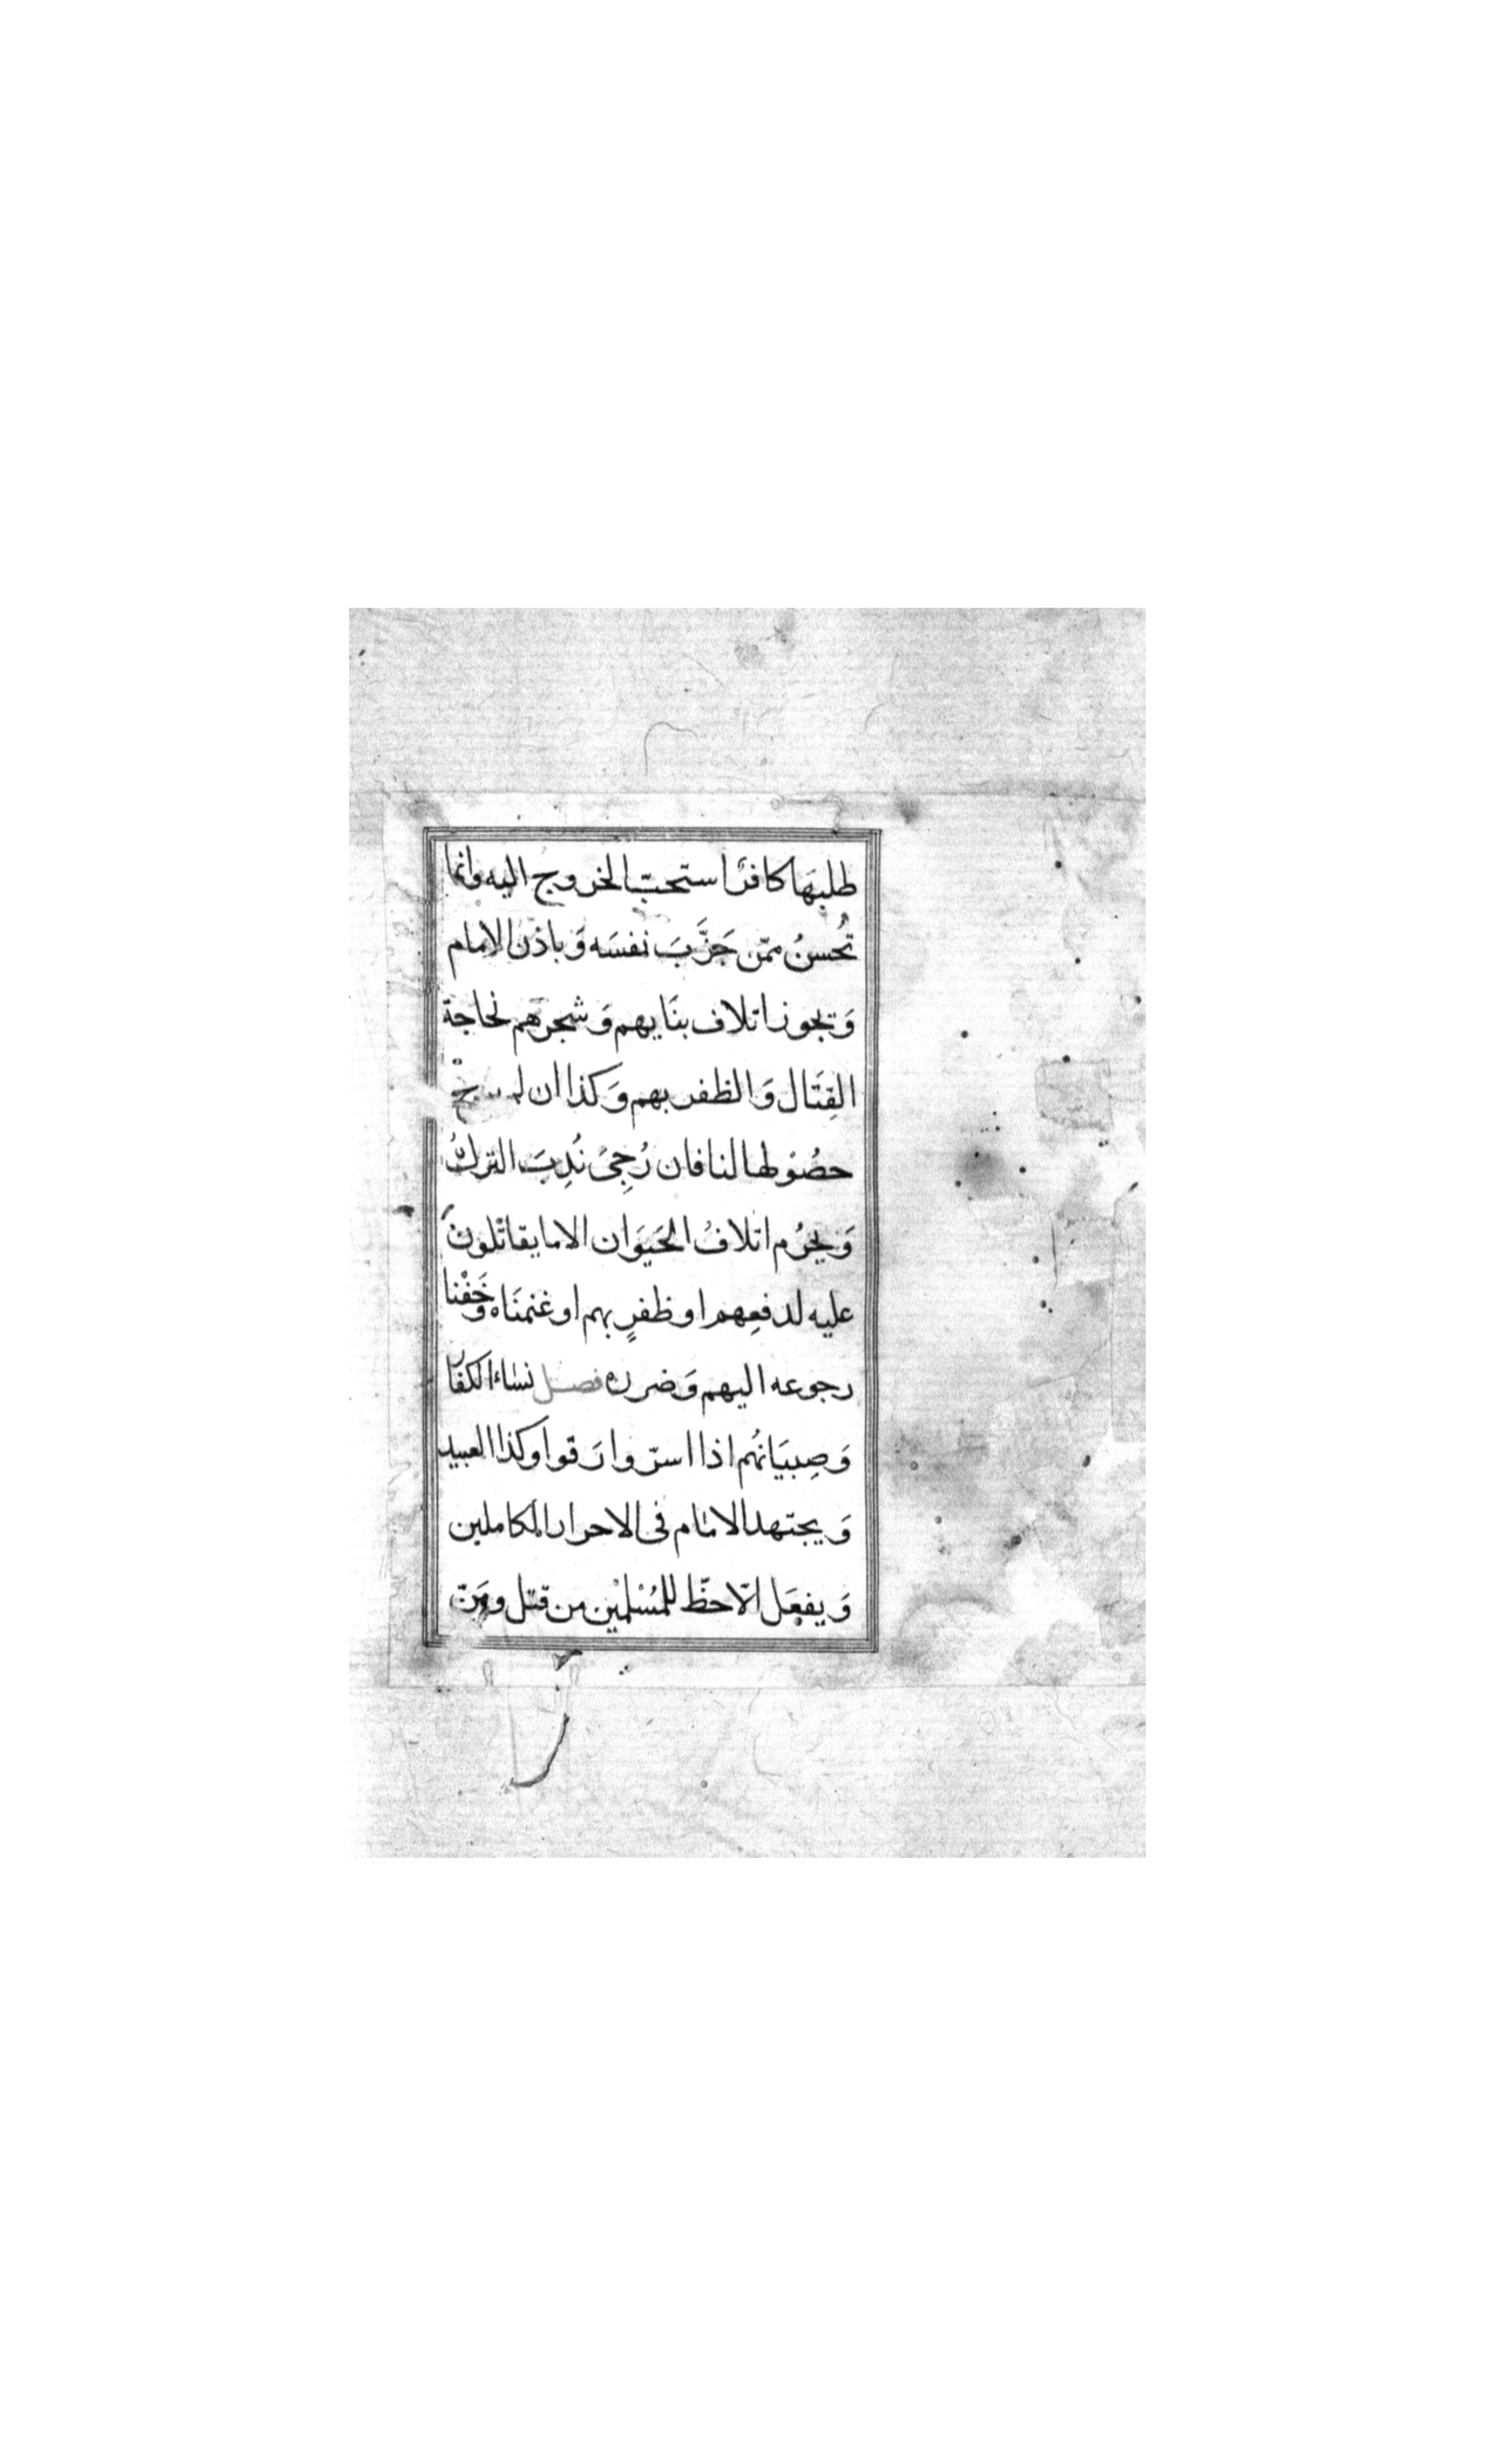 طلبهَا كافرٌ استحبّ الخروج اليه وانما
تُحسنُ ممّن جَرَّبَ نفسَه وَباذن الامام
وَيجوز اتلاف بنَايهم وَشجرهم لحاجة
القِتَال وَالظفر بهم وَكذا ان لم يرجْ
حصُولها لنا فان رُجِىَ نُدِبَ الترك
وَيحرُم اتلافُ الحَيوَان الا ما يقاتلون
عليه لدفعِهم او ظفرٍ بهم او غنمنَاه وَخَفْنا
رجوعه اليهم وَضرره فصل نسَاء الكفار
وَصِبيَانهُم اذا اسرّوا رَقوا وكذا العبيد
وَيجتهد الامَام فى الاحرار الكاملين
وَيفعَل الاحظّ للمُسْلمِيْن من قتل ومَنّ